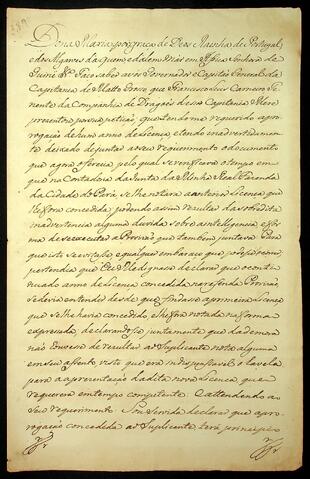 Dona Maria por graça de Deos Rainha de Portugal,
e dos Algarves, daquem, e dalem Mar, em Africa Senhora de
Guiné &ª. Faço saber a vós Governador e Capitão General da
Capitania de Matto Grosso que Francisco Carneiro Te
nente da Companhia de Dragoens dessa Capitania Me re
prezentou por sua petição, que tendo me requerido apro
vação de hum anno de Licença, e tendo inadvertidamen
te deixado de juntar a seu requerimento o documento
que agora oferecia pelo qual se verificava o tempo em
que na Contadoria da Junta da Minha Real Fazenda
da Cidade do Pará se lhe notara a anterior Licença que
lhe fora concedida, podendo assim rezultar da sobredita
inadvertencia alguma duvida sobre a inteligencia e for
ma de se executar a Provizão que tambem juntava. Para
que isto se evitasse, e qualquer embaraço que podesse occorrer
pertendia que Eu Me dignasse declarar que o conti
nuado anno de Licença concedido na referida Provizão
se devia entender desde que findasse a primeira Licença
que se lhe havia concedido, e lhe fora notada na forma
expressada, declarando se juntamente que da demora
não houvesse de rezultar ao Suplicante nota alguma
em seu assento visto que era indispensavel o havela
para a aprezentação da dita nova Licença que
requerera em tempo competente. E attendendo ao
seu requerimento. Sou Servida declarar que a pro
rogação concedida ao Suplicante terá principio